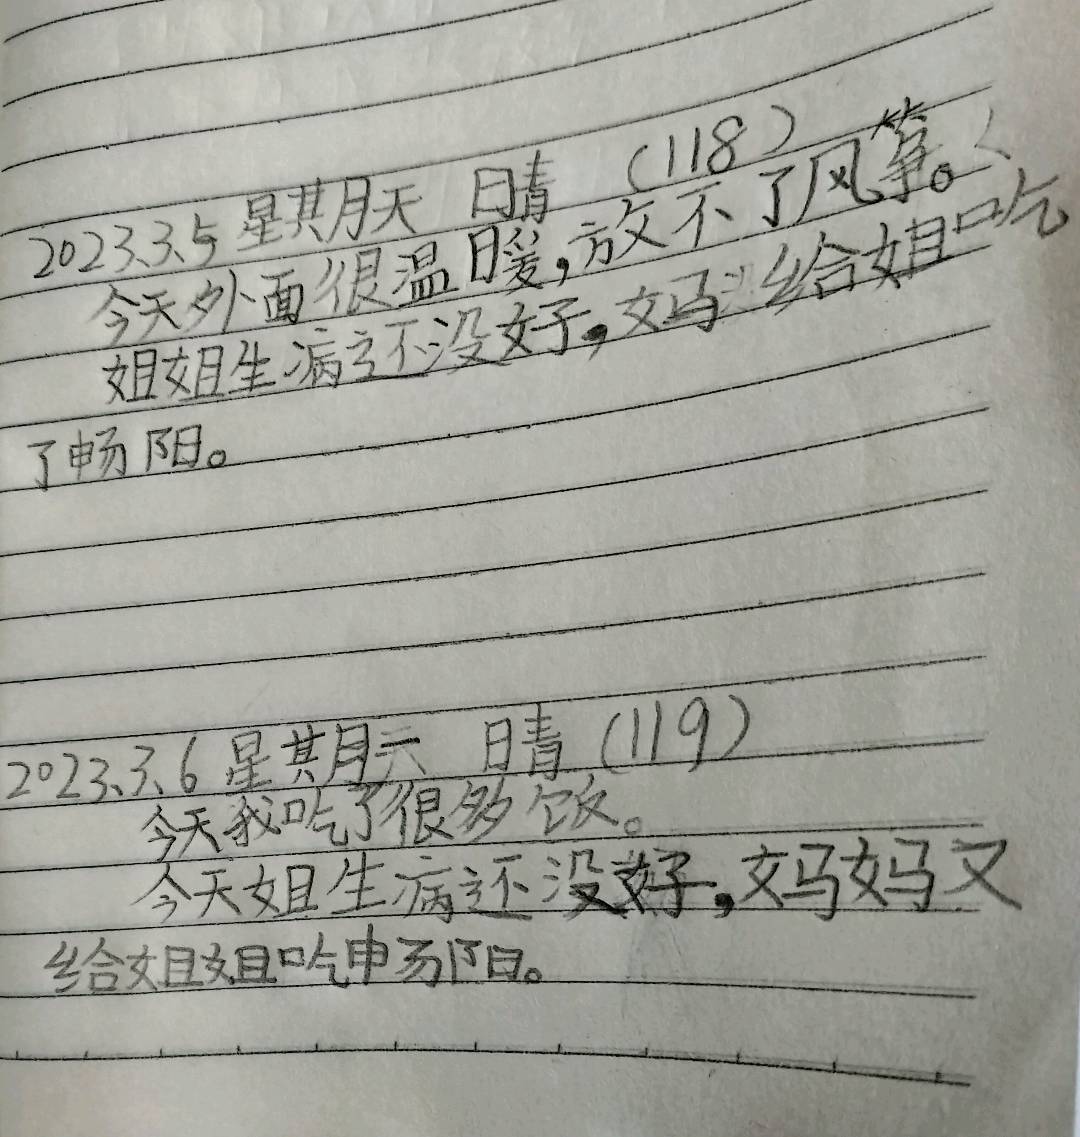 2023.3.5 星期天 晴 (118)
今天外面很温暖,放不了风筝。
姐姐生病还没好,妈给姐吃
了畅阳。
2023.3.6 星期六 晴 (119)
今天我吃了很多饭。
今天姐生病还没好,妈妈又
给姐姐吃畅阳。